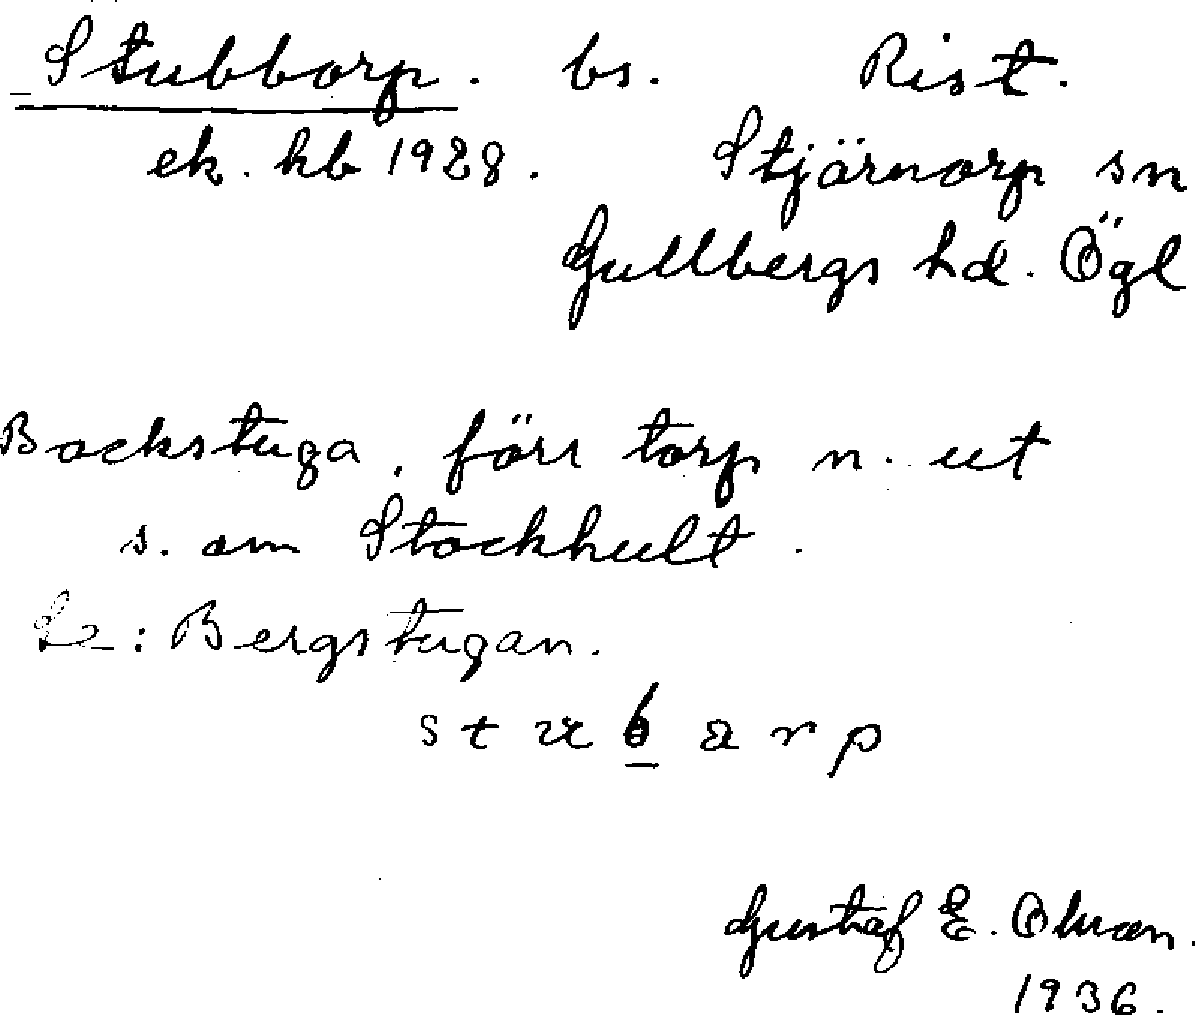 Stubborp. bs. Rist.
ek. kb 1928. Stjärnorp sn
Gullbergs hd. Ögl
Backstuga, förr torp n. ut
s. om Stockhult.
: Bergstugan.
Gustaf E. Ohman.
1936.